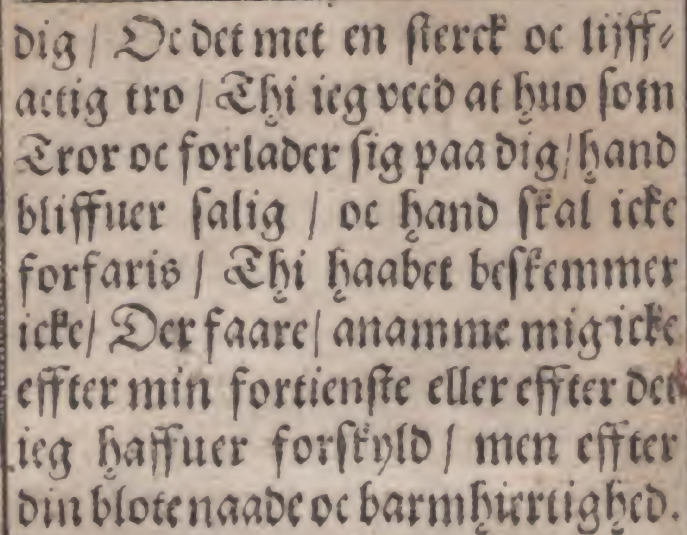 dig / Oc det met en sterck oc lijff⸗
actig tro / Thi ieg veed at huo som
Tror oc forlader sig paa dig / hand
bliffuer salig / oc hand skal icke
forfaris / Thi haabet beskemmer
icke / Der faare / anamme mig icke
effter min fortienste eller effter det
ieg haffuer forskyld / men effter
din blote naade oc barmhiertighed.